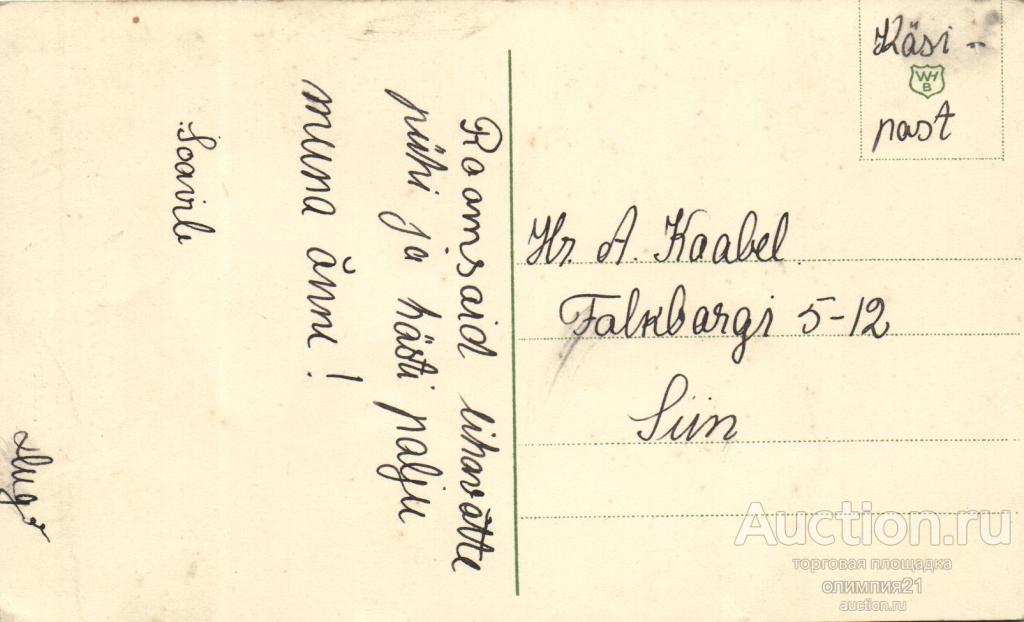 Roomsaid lihavõtte
pühi ja hästi palju
muna õnne!
Soovib
Hugo
Käsi-
WH
B
post
Hr. A. Kaabel.
Falkbargi 5-12
Siin
Auction.ru
торговая площадка
олимпия21
auction.ru